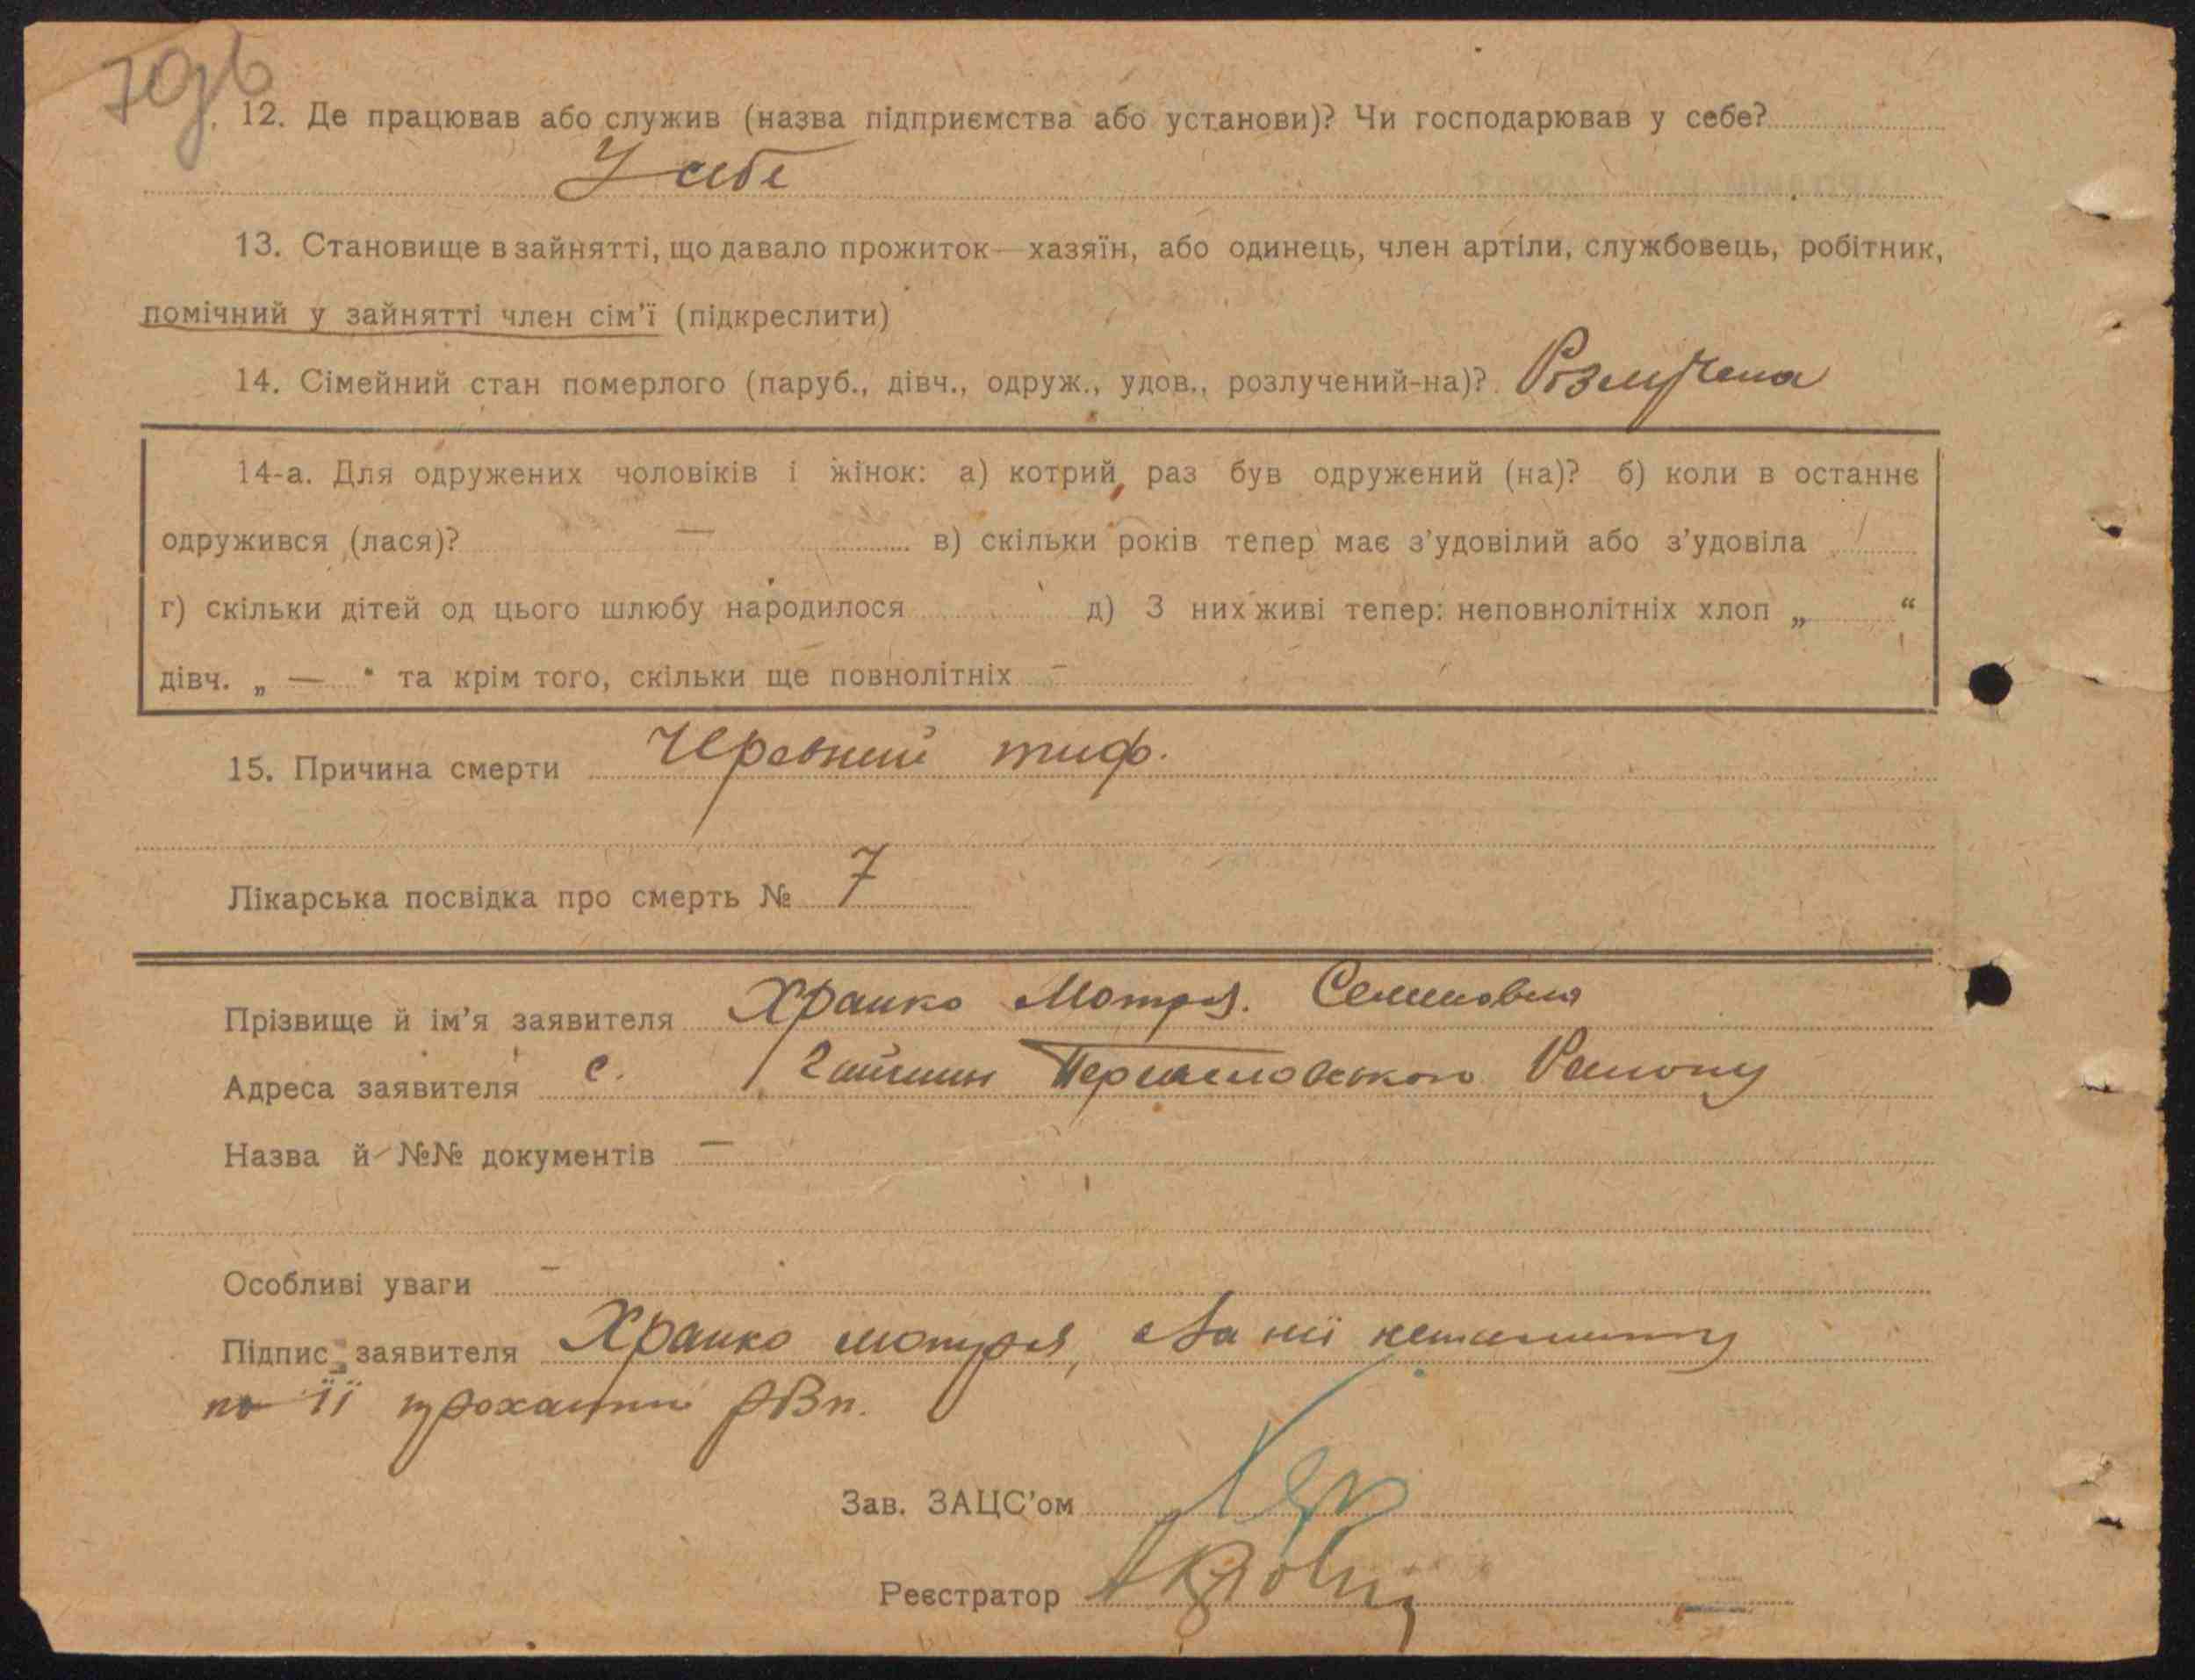 70зв
12. Де працював або служив (назва підприємства або установи)? Чи господарював у себе?
У себе
13. Становище в зайнятті, що давало прожиток—хазяїн, або одинець, член артіли, службовець, робітник,
помічний у зайнятті член сім'ї (підкреслити)
14. Сімейний стан померлого (паруб., дівч., одруж., удов., розлучений-на)? Розлучена
14-а. Для одружених чоловіків і жінок: а) котрий раз був одружений (на)? б) коли в останнє
одружився (лася)? — в) скільки років тепер має з'удовілий або з'удовіла
г) скільки дітей од цього шлюбу народилося д) З них живі тепер: неповнолітніх хлоп „ “
дівч. „ — “ та крім того, скільки ще повнолітніх —
15. Причина смерти Черевний тиф.
Лікарська посвідка про смерть № 7
Прізвище й ім'я заявителя Храпко Мотря. Семеновна
Адреса заявителя с. Гайшин Переяславського Району
Назва й №№ документів —
Особливі уваги —
Підпис заявителя Храпко Мотря, За неї неписьменну
по її проханні
Зав. ЗАЦС'ом
Реєстратор